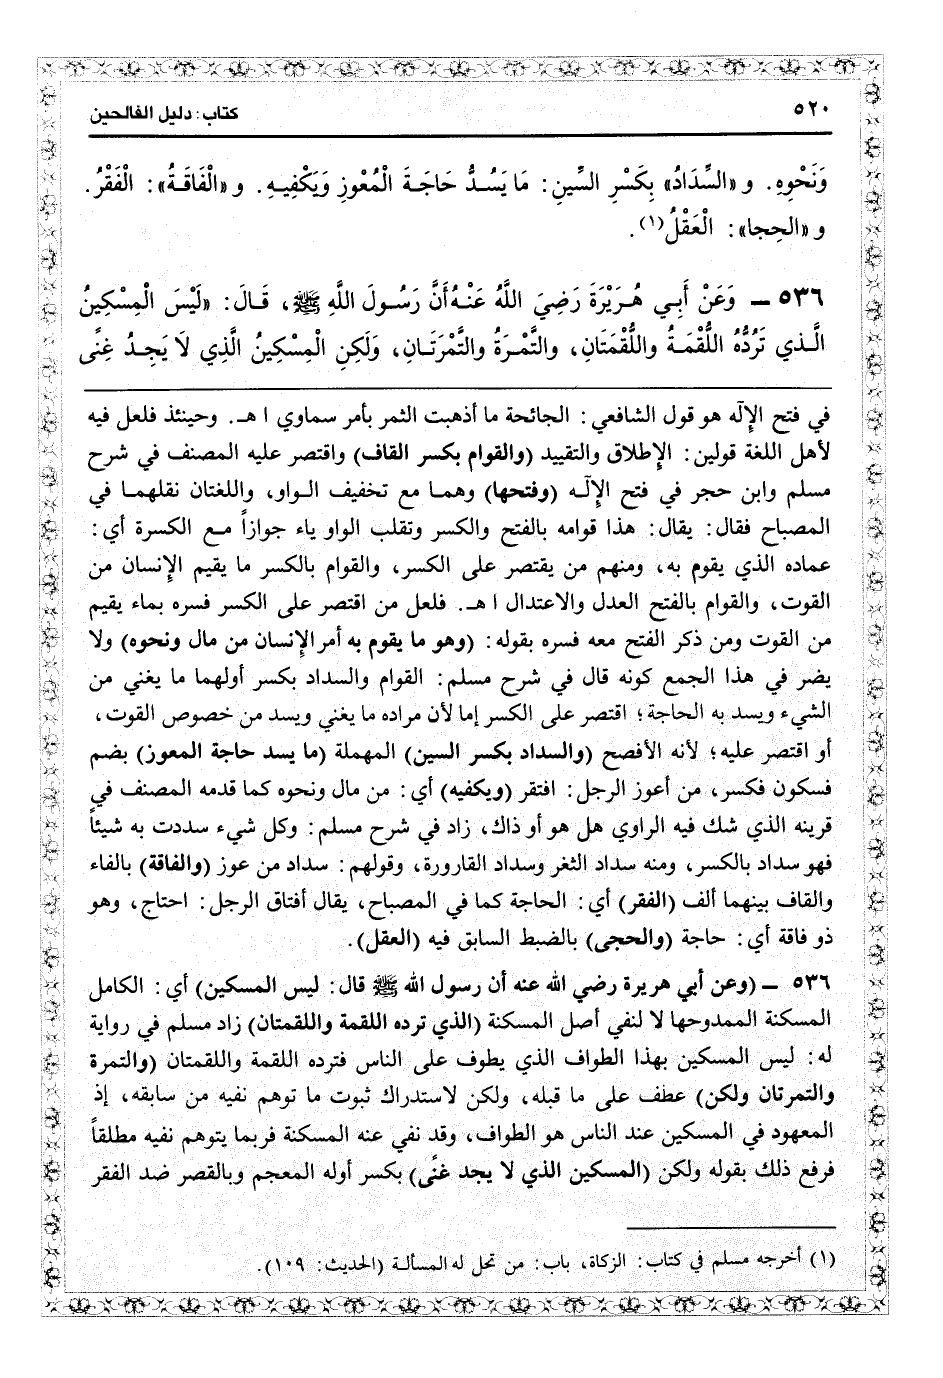 ٥٢٠
كتاب: دليل الفالحين
وَنَحْوِهِ. و «السِّدَادُ» بِكَسْرِ السِّينِ: مَا يَسُدُّ حَاجَةَ الْمُعْوِزِ وَيَكْفِيهِ. و «الْفَاقَةُ»: الْفَقْرُ.
و «الحِجا»: الْعَقْلُ(١).
٥٣٦ ــ وَعَنْ أَبِي هُرَيْرَةَ رَضِيَ اللَّهُ عَنْهُ أَنَّ رَسُولَ اللَّهِ ﷺ، قَالَ: «لَيْسَ الْمِسْكِينُ
الَّذي تَرُدُّهُ اللُّقْمَةُ واللُّقْمَتَانِ، والتَّمْرَةُ والتَّمْرَتَانِ، وَلَكِنِ الْمِسْكِينُ الَّذِي لاَ يَجِدُ غِنًى
في فتح الإِلّه هو قول الشافعي: الجائحة ما أذهبت الثمر بأمر سماوي اهـ. وحينئذ فلعل فيه
لأهل اللغة قولين: الإِطلاق والتقييد (والقوام بكسر القاف) واقتصر عليه المصنف في شرح
مسلم وابن حجر في فتح الإِلّه (وفتحها) وهما مع تخفيف الواو، واللغتان نقلهما في
المصباح فقال: يقال: هذا قوامه بالفتح والكسر وتقلب الواو ياء جوازاً مع الكسرة أي:
عماده الذي يقوم به، ومنهم من يقتصر على الكسر، والقوام بالكسر ما يقيم الإِنسان من
القوت، والقوام بالفتح العدل والاعتدال اهـ. فلعل من اقتصر على الكسر فسره بماء يقيم
من القوت ومن ذكر الفتح معه فسره بقوله: (وهو ما يقوم به أمر الإِنسان من مال ونحوه) ولا
يضر في هذا الجمع كونه قال في شرح مسلم: القوام والسداد بكسر أولهما ما يغني من
الشيء ويسد به الحاجة؛ اقتصر على الكسر إما لأن مراده ما يغني ويسد من خصوص القوت،
أو اقتصر عليه؛ لأنه الأفصح (والسداد بكسر السين) المهملة (ما يسد حاجة المعوز) بضم
فسكون فكسر، من أعوز الرجل: افتقر (ويكفيه) أي: من مال ونحوه كما قدمه المصنف في
قرينه الذي شك فيه الراوي هل هو أو ذاك، زاد في شرح مسلم: وكل شيء سددت به شيئاً
فهو سداد بالكسر، ومنه سداد الثغر وسداد القارورة، وقولهم: سداد من عوز (والفاقة) بالفاء
والقاف بينهما ألف (الفقر) أي: الحاجة كما في المصباح، يقال أفتاق الرجل: احتاج، وهو
ذو فاقة أي: حاجة (والحجى) بالضبط السابق فيه (العقل).
٥٣٦ ــ (وعن أبي هريرة رضي الله عنه أن رسول الله ﷺ قال: ليس المسكين) أي: الكامل
المسكنة الممدوحها لا لنفي أصل المسكنة (الذي ترده اللقمة واللقمتان) زاد مسلم في رواية
له: ليس المسكين بهذا الطواف الذي يطوف على الناس فترده اللقمة واللقمتان (والتمرة
والتمرتان ولكن) عطف على ما قبله، ولكن لاستدراك ثبوت ما توهم نفيه من سابقه، إذ
المعهود في المسكين عند الناس هو الطواف، وقد نفي عنه المسكنة فربما يتوهم نفيه مطلقاً
فرفع ذلك بقوله ولكن (المسكين الذي لا يجد غنًى) بكسر أوله المعجم وبالقصر ضد الفقر
(١) أخرجه مسلم في كتاب: الزكاة، باب: من تحل له المسألة (الحديث: ١٠٩).